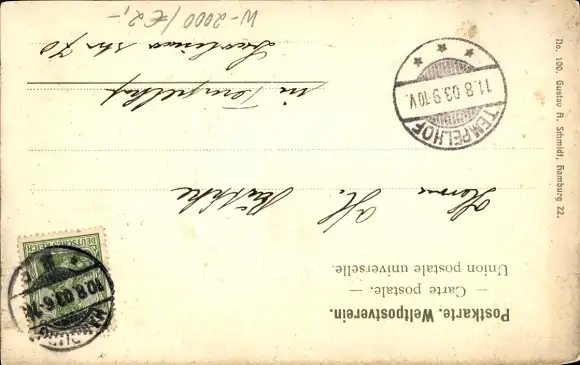 Postkarte. Weltpostverein.
— Carte postale. —
Union postale universelle.
DEUTSCHES REICH
10.8.03.6-7N
Herrn H.
in Tempelhof
70
TEMPELHOF
11.8.03.9-10V.
No. 100. Gustav A. Schmidt, Hamburg 22.
W-2000/€2,-